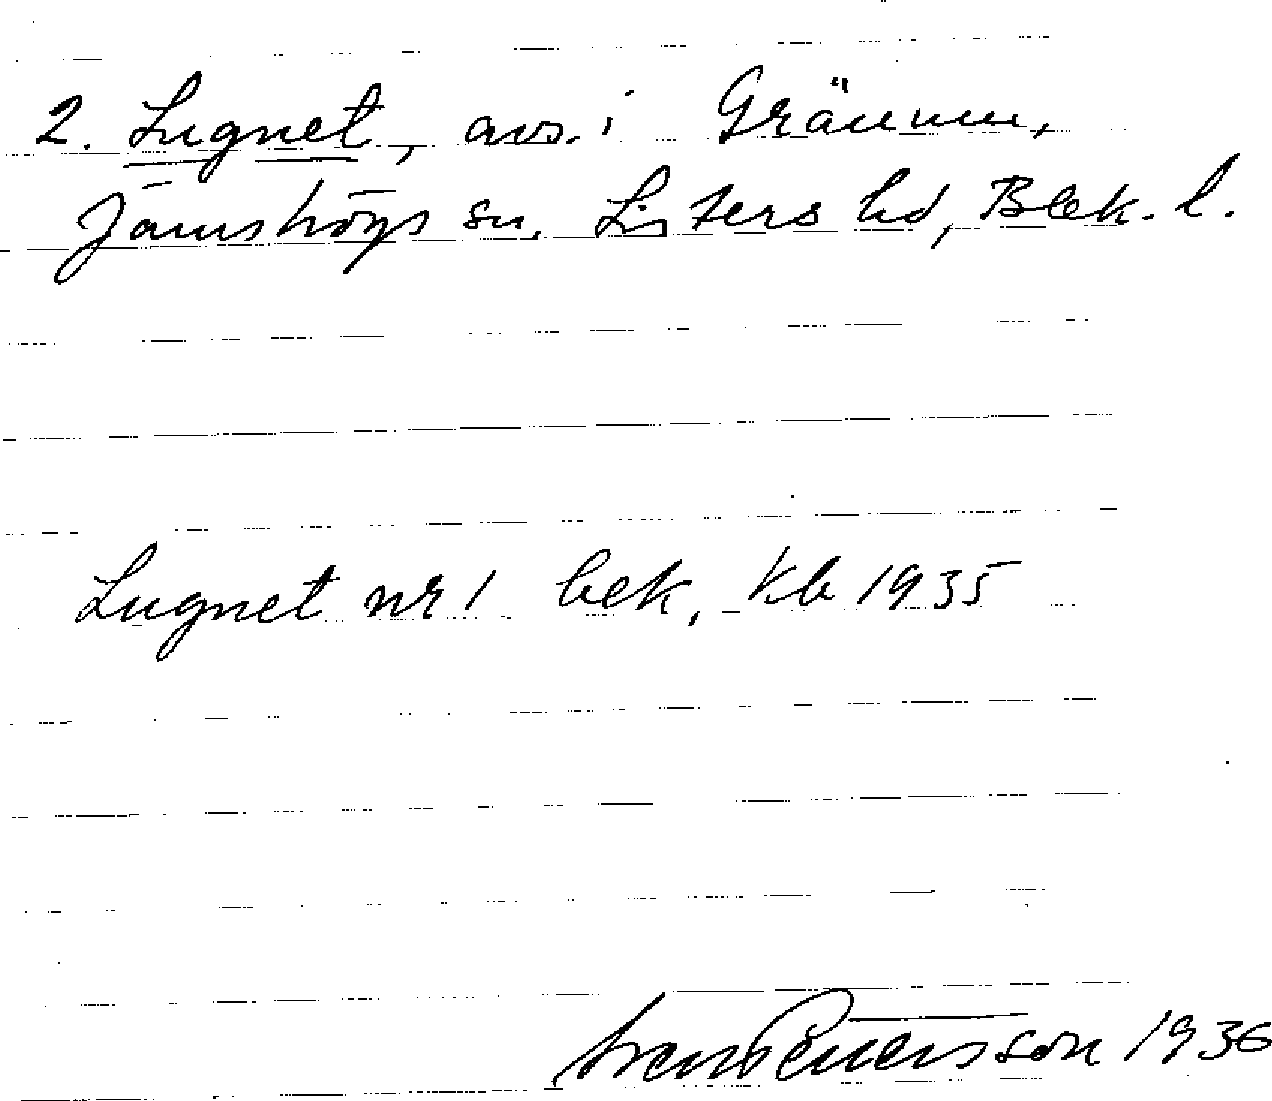 2. Lugnet, avs. i Gränum,
Jämshögs sn. Listers hd, Blek. l.
Lugnet nr 1 bek. Kb 1935
Sven Pettersson 1936